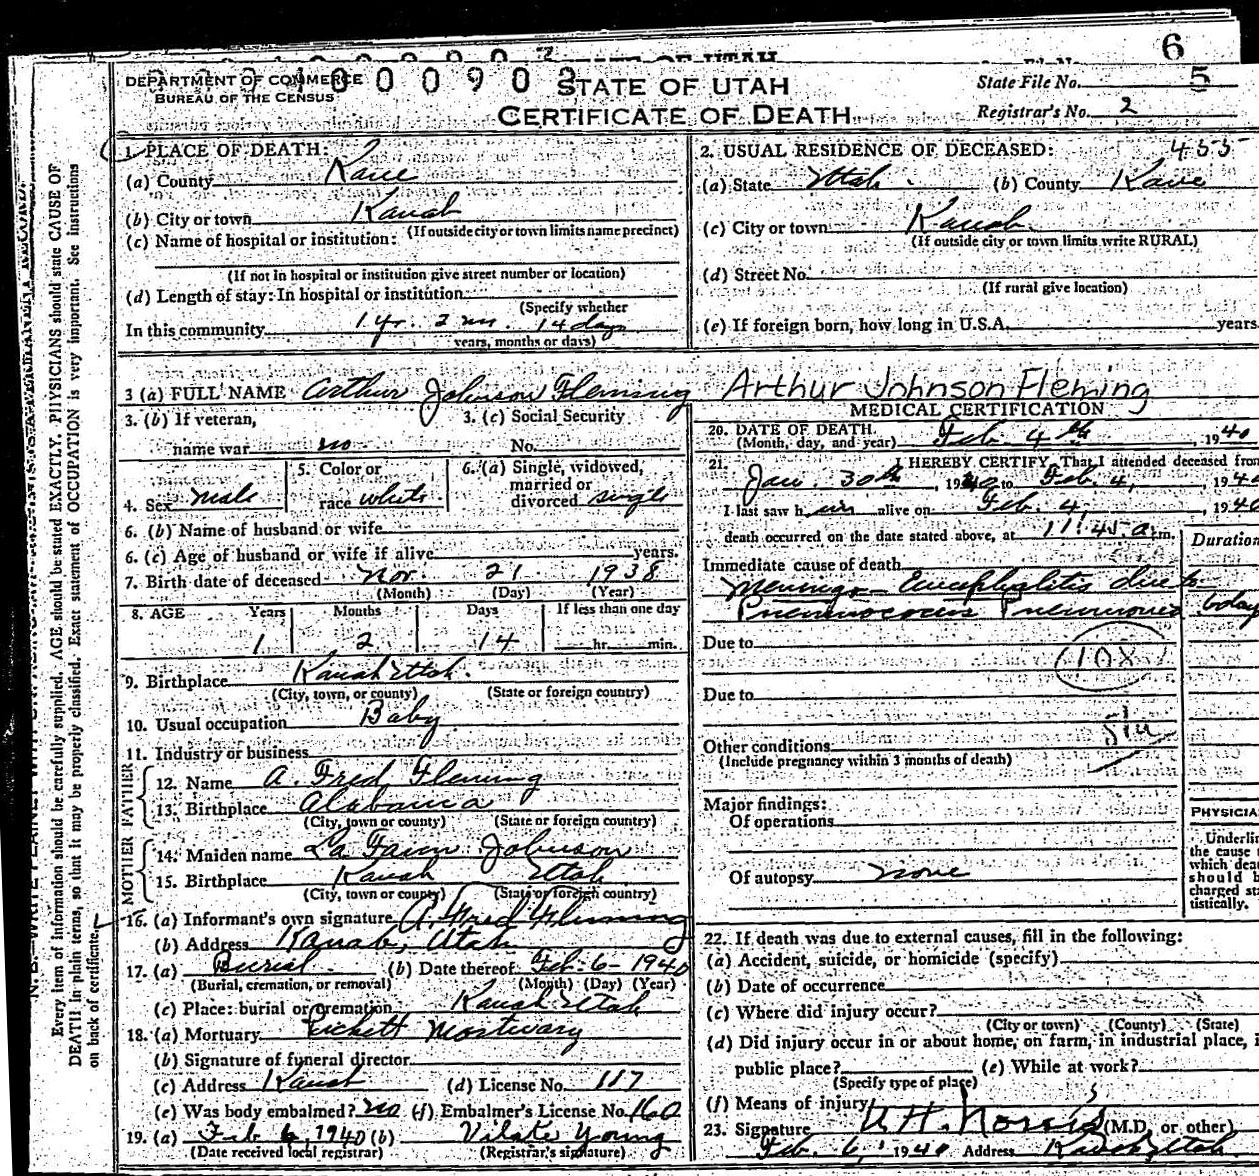 6
DEPARTMENT OF COMMERCE
BUREAU OF THE CENSUS
0 0 0 9 0
STATE OF UTAH
CERTIFICATE OF DEATH
State File No. 5
Registrar's No. 2
1. PLACE OF DEATH:
(a) County Kane
(b) City or town Kanab
(If outside city or town limits name precinct)
(c) Name of hospital or institution:
(If not in hospital or institution give street number or location)
(d) Length of stay: In hospital or institution
(Specify whether
In this community 1 yr. 2 m. 14 days
years, months or days)
2. USUAL RESIDENCE OF DECEASED: 455
(a) State Utah (b) County Kane
(c) City or town Kanab
(If outside city or town limits write RURAL)
(d) Street No.
(If rural give location)
(e) If foreign born, how long in U.S.A. years
3 (a) FULL NAME Arthur Johnson Fleming Arthur Johnson Fleming
3. (b) If veteran,
name war no
3. (c) Social Security
No.
4. Sex male
5. Color or
race white
6. (a) Single, widowed,
married or
divorced single
6. (b) Name of husband or wife
6. (c) Age of husband or wife if alive years.
7. Birth date of deceased Nov. 21 1938
(Month) (Day) (Year)
8. AGE Years Months Days If less than one day
1 2 14 hr. min.
9. Birthplace Kanab Utah.
(City, town, or county) (State or foreign country)
10. Usual occupation Baby
11. Industry or business
FATHER
12. Name A. Fred Fleming
13. Birthplace Alabama
(City, town or county) (State or foreign country)
MOTHER
14. Maiden name La Faun Johnson
15. Birthplace Kanab Utah
(City, town or county) (State or foreign country)
16. (a) Informant's own signature A. Fred Fleming
(b) Address Kanab, Utah
17. (a) Burial (b) Date thereof Feb. 6 - 1940
(Burial, cremation, or removal) (Month) (Day) (Year)
(c) Place: burial or cremation Kanab Utah
18. (a) Mortuary Mortuary
(b) Signature of funeral director
(c) Address Kanab (d) License No. 117
(e) Was body embalmed? no (f) Embalmer's License No. 160
19. (a) Feb 6, 1940 (b) Vilate Young
(Date received local registrar) (Registrar's signature)
MEDICAL CERTIFICATION
20. DATE OF DEATH
(Month, day, and year) Feb 4th, 1940
21. I HEREBY CERTIFY, That I attended deceased from
Jan. 30th, 1940 to Feb. 4, 1940
I last saw him alive on Feb. 4, 1940
death occurred on the date stated above, at 11:45 a.m.
Duration
Immediate cause of death
Meningo-Encephalitis due to
Pneumococcus Pneumonia 6 day
Due to
10X
Due to
Other conditions
(Include pregnancy within 3 months of death)
Major findings:
Of operations
Of autopsy none
PHYSICIA
Underlin
the cause
which dea
should b
charged sta
tistically.
22. If death was due to external causes, fill in the following:
(a) Accident, suicide, or homicide (specify)
(b) Date of occurrence
(c) Where did injury occur?
(City or town) (County) (State)
(d) Did injury occur in or about home, on farm, in industrial place, i
public place? (e) While at work?
(Specify type of place)
(f) Means of injury
23. Signature Norris (M.D. or other)
Feb. 6, 1940 Address Kanab, Utah
Every item of information should be carefully supplied. AGE should be stated EXACTLY. PHYSICIANS should state CAUSE OF
DEATH in plain terms, so that it may be properly classified. Exact statement of OCCUPATION is very important. See instructions
on back of certificate.